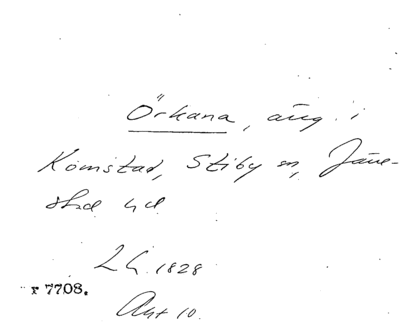 Örkana, äng i
Komstad, Stiby sn, Järre-
stad hd
LH 1828
r 7708.
Akt 10.